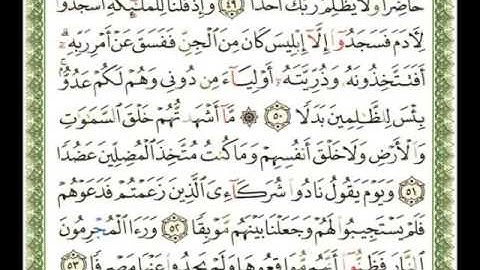 حَاضِرًا وَلَا يَظْلِمُ رَبُّكَ أَحَدًا ٤٩ وَإِذْ قُلْنَا لِلْمَلَٰٓئِكَةِ ٱسْجُدُوا۟
لِـَٔادَمَ فَسَجَدُوٓا۟ إِلَّآ إِبْلِيسَ كَانَ مِنَ ٱلْجِنِّ فَفَسَقَ عَنْ أَمْرِ رَبِّهِۦٓ ۗ
أَفَتَتَّخِذُونَهُۥ وَذُرِّيَّتَهُۥٓ أَوْلِيَآءَ مِن دُونِى وَهُمْ لَكُمْ عَدُوٌّۢ ۚ
بِئْسَ لِلظَّٰلِمِينَ بَدَلًا ٥٠ ۞ مَّآ أَشْهَدتُّهُمْ خَلْقَ ٱلسَّمَٰوَٰتِ
وَٱلْأَرْضِ وَلَا خَلْقَ أَنفُسِهِمْ وَمَا كُنتُ مُتَّخِذَ ٱلْمُضِلِّينَ عَضُدًا
٥١ وَيَوْمَ يَقُولُ نَادُوا۟ شُرَكَآءِىَ ٱلَّذِينَ زَعَمْتُمْ فَدَعَوْهُمْ
فَلَمْ يَسْتَجِيبُوا۟ لَهُمْ وَجَعَلْنَا بَيْنَهُم مَّوْبِقًا ٥٢ وَرَءَا ٱلْمُجْرِمُونَ
ٱلنَّارَ فَظَنُّوٓا۟ أَنَّهُم مُّوَاقِعُوهَا وَلَمْ يَجِدُوا۟ عَنْهَا مَصْرِفًا ٥٣